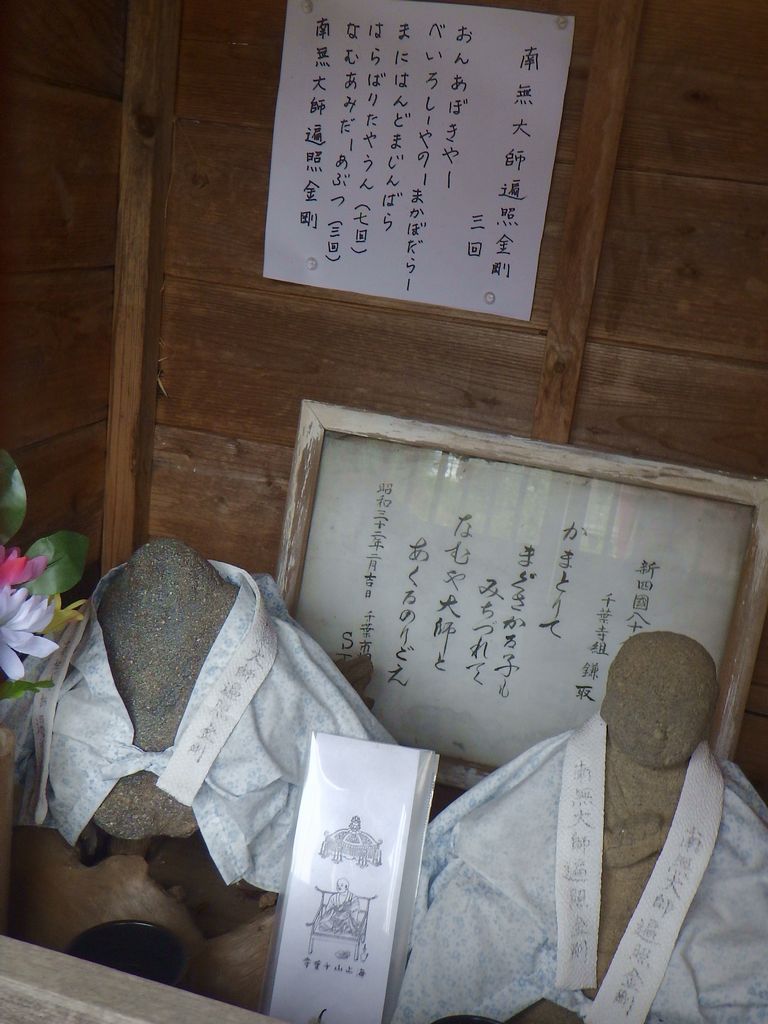 南無大師遍照金剛
三回
おんあぼきやー
べいろしーやのーまかぼだらー
まにはんどまじんばら
はらばりたやうん（七回）
なむあみだーあぶつ（三回）
南無大師遍照金剛
新四國八十
千葉寺組 鎌取
かまとりて
まぐさかる子も
みちづれて
なむや大師と
あくるのりごえ
昭和三十二年二月吉日 千葉市
大師遍照金剛
南無大師遍照金剛
南無大師遍照金剛
海上山千葉寺